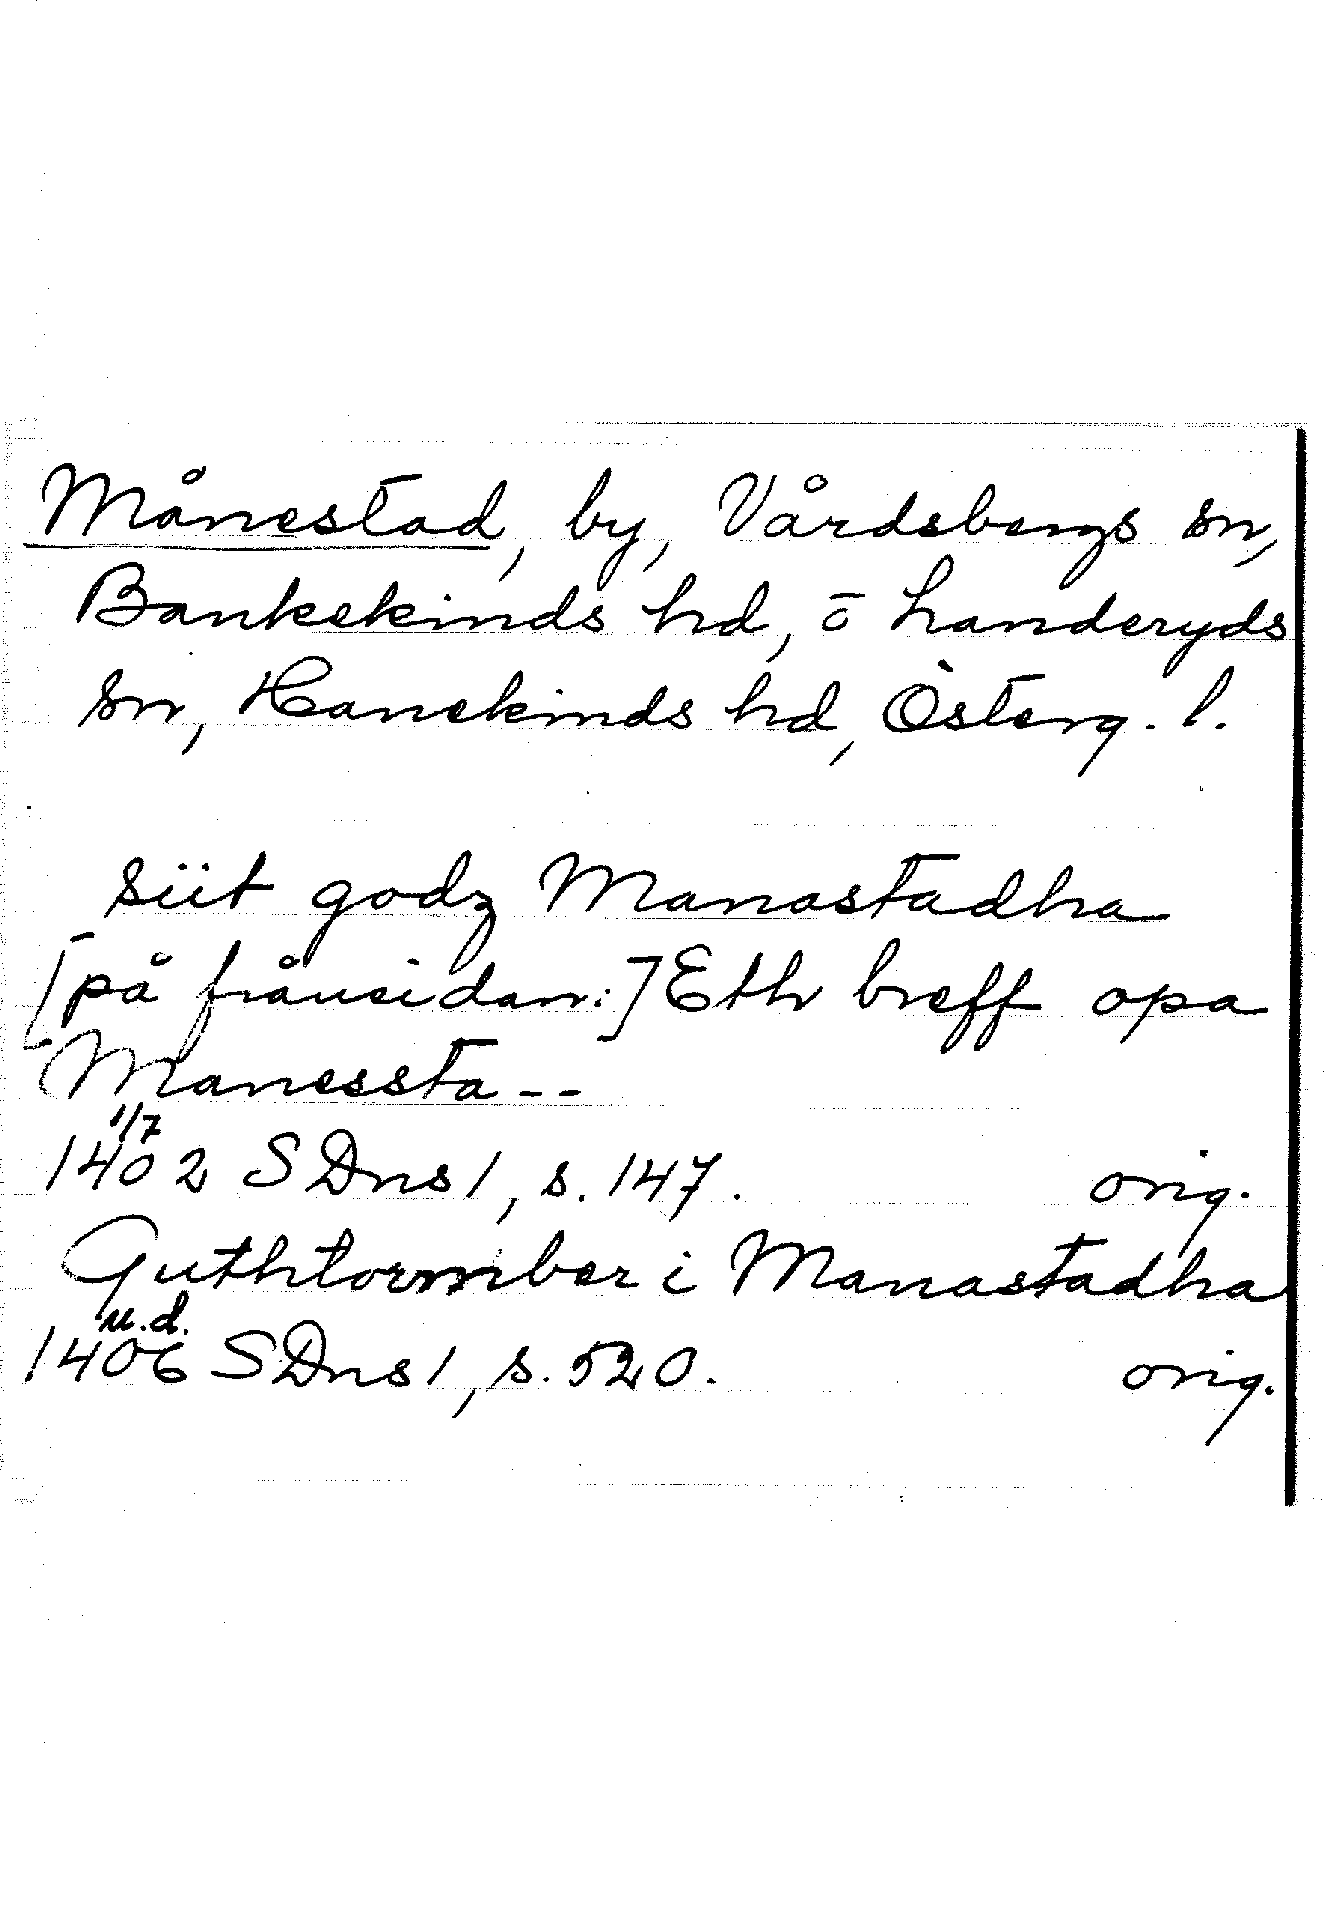 Månestad, by, Vårdsbergs sn,
Bankekinds hd, o Landeryds
sn, Hanekinds hd, Österg. l.
siit godz Manastadha
[på frånsidan:] Eth breff opa
Manessta --
1/7
1402 SDns 1, s. 147. orig.
Guthtormber i Manastadha
u.d.
1406 SDns 1, s. 520. orig.